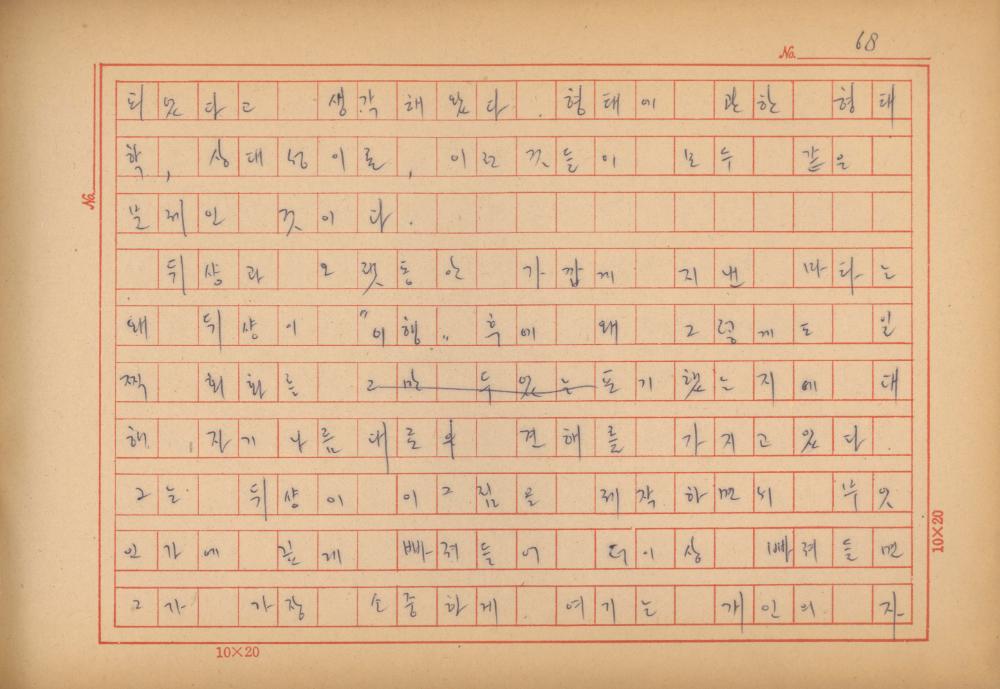 No. 68
되었다고 생각해 왔다. 형태에 관한 형태
학, 상대성이론, 이런 것들이 모두 같은
문제인 것이다.
뒤샹과 오랫동안 가깝게 지낸 마타는
왜 뒤샹이 "이행" 후에 왜 그렇게도 일
찍 회화를 그만 두었는포기했는지에 대
해 자기 나름대로의 견해를 가지고 있다.
그는 뒤샹이 이 그림을 제작하면서 무엇
인가에 깊게 빠져들어 더이상 빠져들면
그가 가장 소중하게 여기는 개인의 자
No.
10×20
10×20